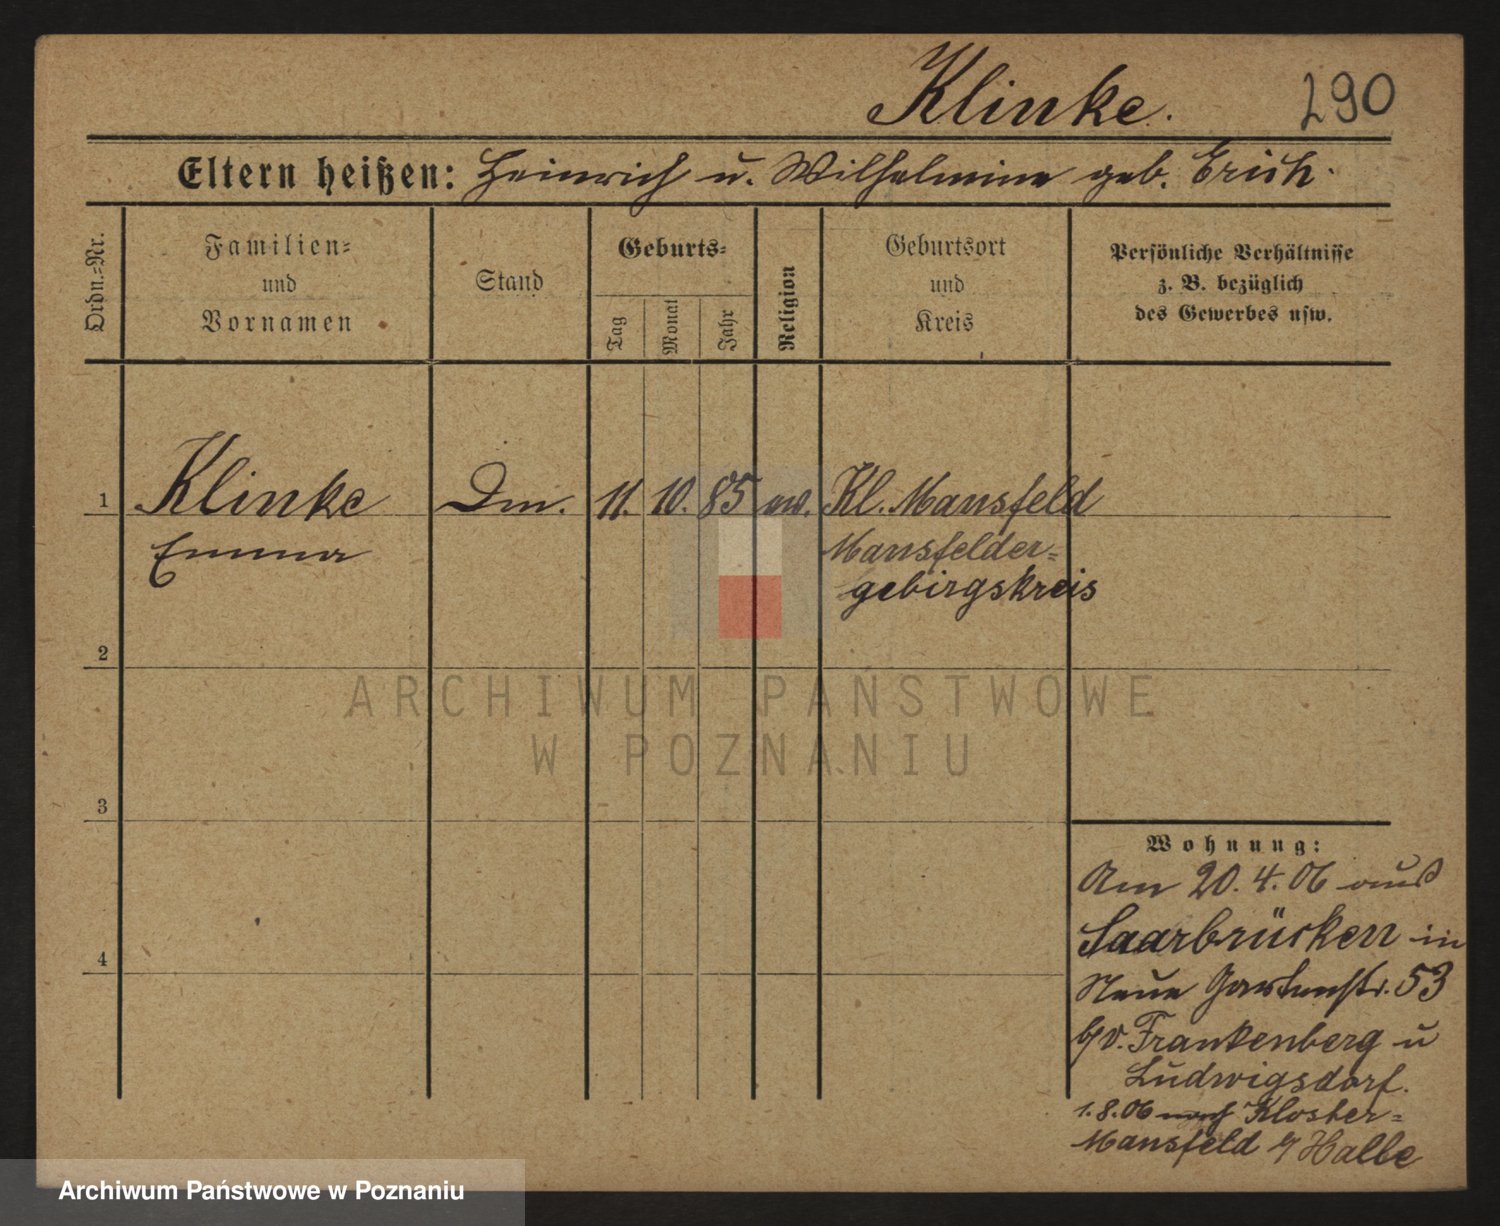 Klinke. 290
Eltern heißen: Heinrich u. Wilhelmine geb. Erich.
Ordn.=Nr.
Familien=
und
Vornamen
Stand
Geburts=
Tag
Monat
Jahr
Religion
Geburtsort
und
Kreis
Persönliche Verhältnisse
z. B. bezüglich
des Gewerbes usw.
1 Klinke 11. 10. 85 Kl. Mansfeld
Emma Mansfelder=
gebirgskreis
2
3
4
ARCHIWUM PAŃSTWOWE
W POZNANIU
Wohnung:
Am 20. 4. 06 aus
Saarbrücken in
Neue Gartenstr. 53
b/ v. Frankenberg u
Ludwigsdorf.
1. 8. 06 nach Kloster=
Mansfeld Halbe
Archiwum Państwowe w Poznaniu